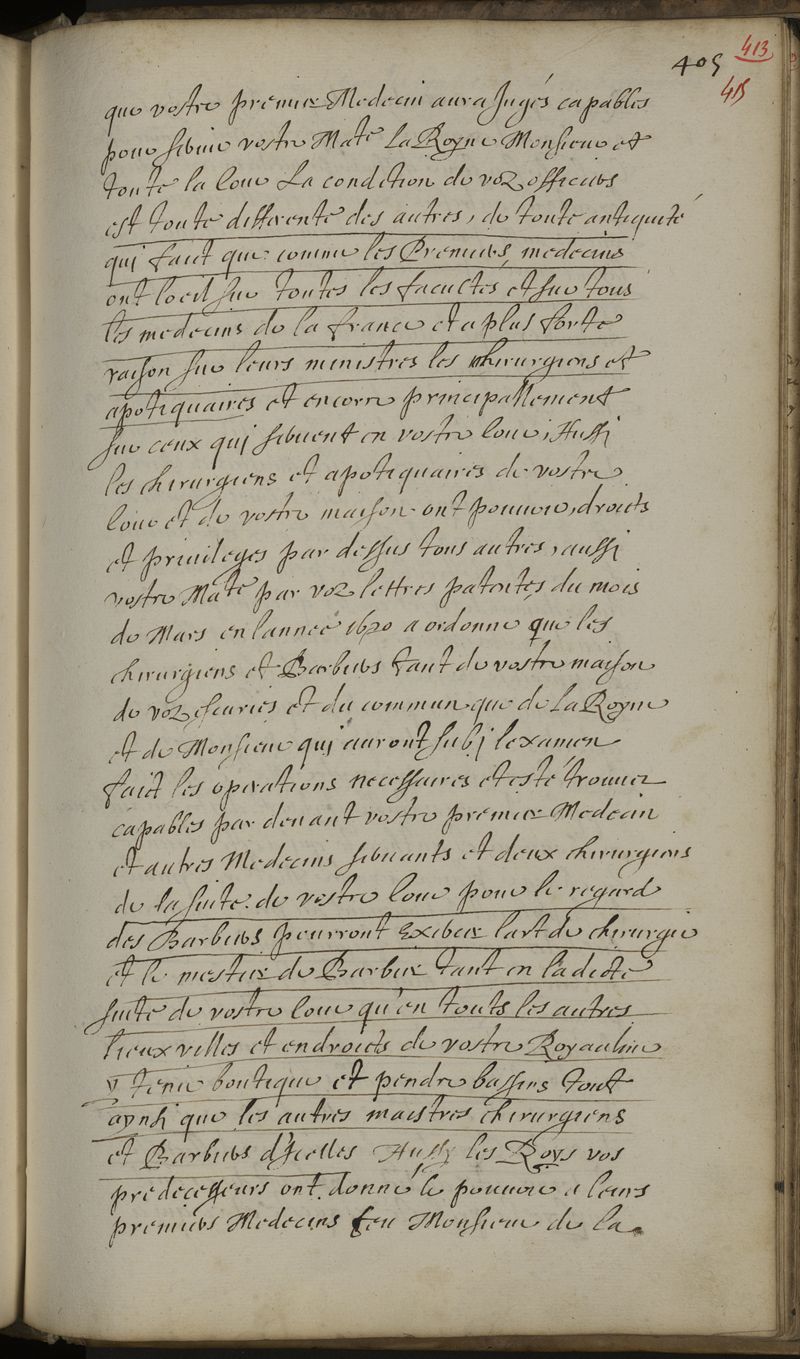 405
413
415
que vostre premier Medecin aura Jugés capables
pour servir vostre Maté La Royne Monsieur et
toute la Cour La condition de voz officiers
est toute differente des autres, de toute antiquité
qui faict que comme les Premiers medecins
ont loeil sur toutes les facultés et sur tous
les medecins de la france et a plus forte
raison sur leurs ministres les chirurgiens et
apotiquaires et encorre principallement
sur ceux qui servent en vostre Cour, Aussi
les chirurgiens et apotiquaires de vostre
Cour et de vostre maison ont pouvoir, droicts
et privileges par dessus tous autres, aussi
vostre Maté par voz lettres patentes du mois
de Mars en lannee 1620 a ordonné que les
chirurgiens et Barbiers tant de vostre maison
de voz escuries et du commun que de La Royne
et de Monsieur qui auront subj lexamen
faict les operations necessaires et esté trouvez
capables par devant vostre premier Medecin
et autres Medecins servants et deux chirurgiens
de la suite de vostre Cour pour le regard
des Barbiers pourront Exercer lart de chirurgie
et le mestier de Barbier tant en ladicte
suite de vostre Cour qu'en touts les autres
lieux villes et endroicts de vostre Royaulme
y tenir boutique et pendre bassins tout
aynsi que les autres maistres chirurgiens
et Barbiers d'Icelles Aussy les Roys vos
predecesseurs ont donné le pouvoir a leurs
premiers Medecins feu Monsieur de la